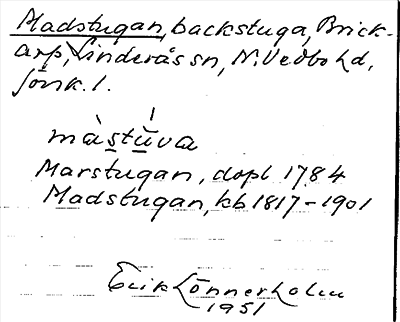 Madstugan, backstuga, Brick-
arp, Linderås sn, N. Vedbo hd,
Jönk. l.
màstúva
Marstugan, dopl 1784
Madstugan, kb 1817-1901
Erik Lönnerholm
1951